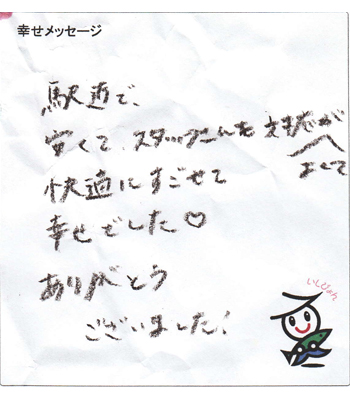 幸せメッセージ
駅近で、
安くて、スタッフさんも対応が
よくて
快適にすごせて
幸せでした♡
ありがとう
ございました!